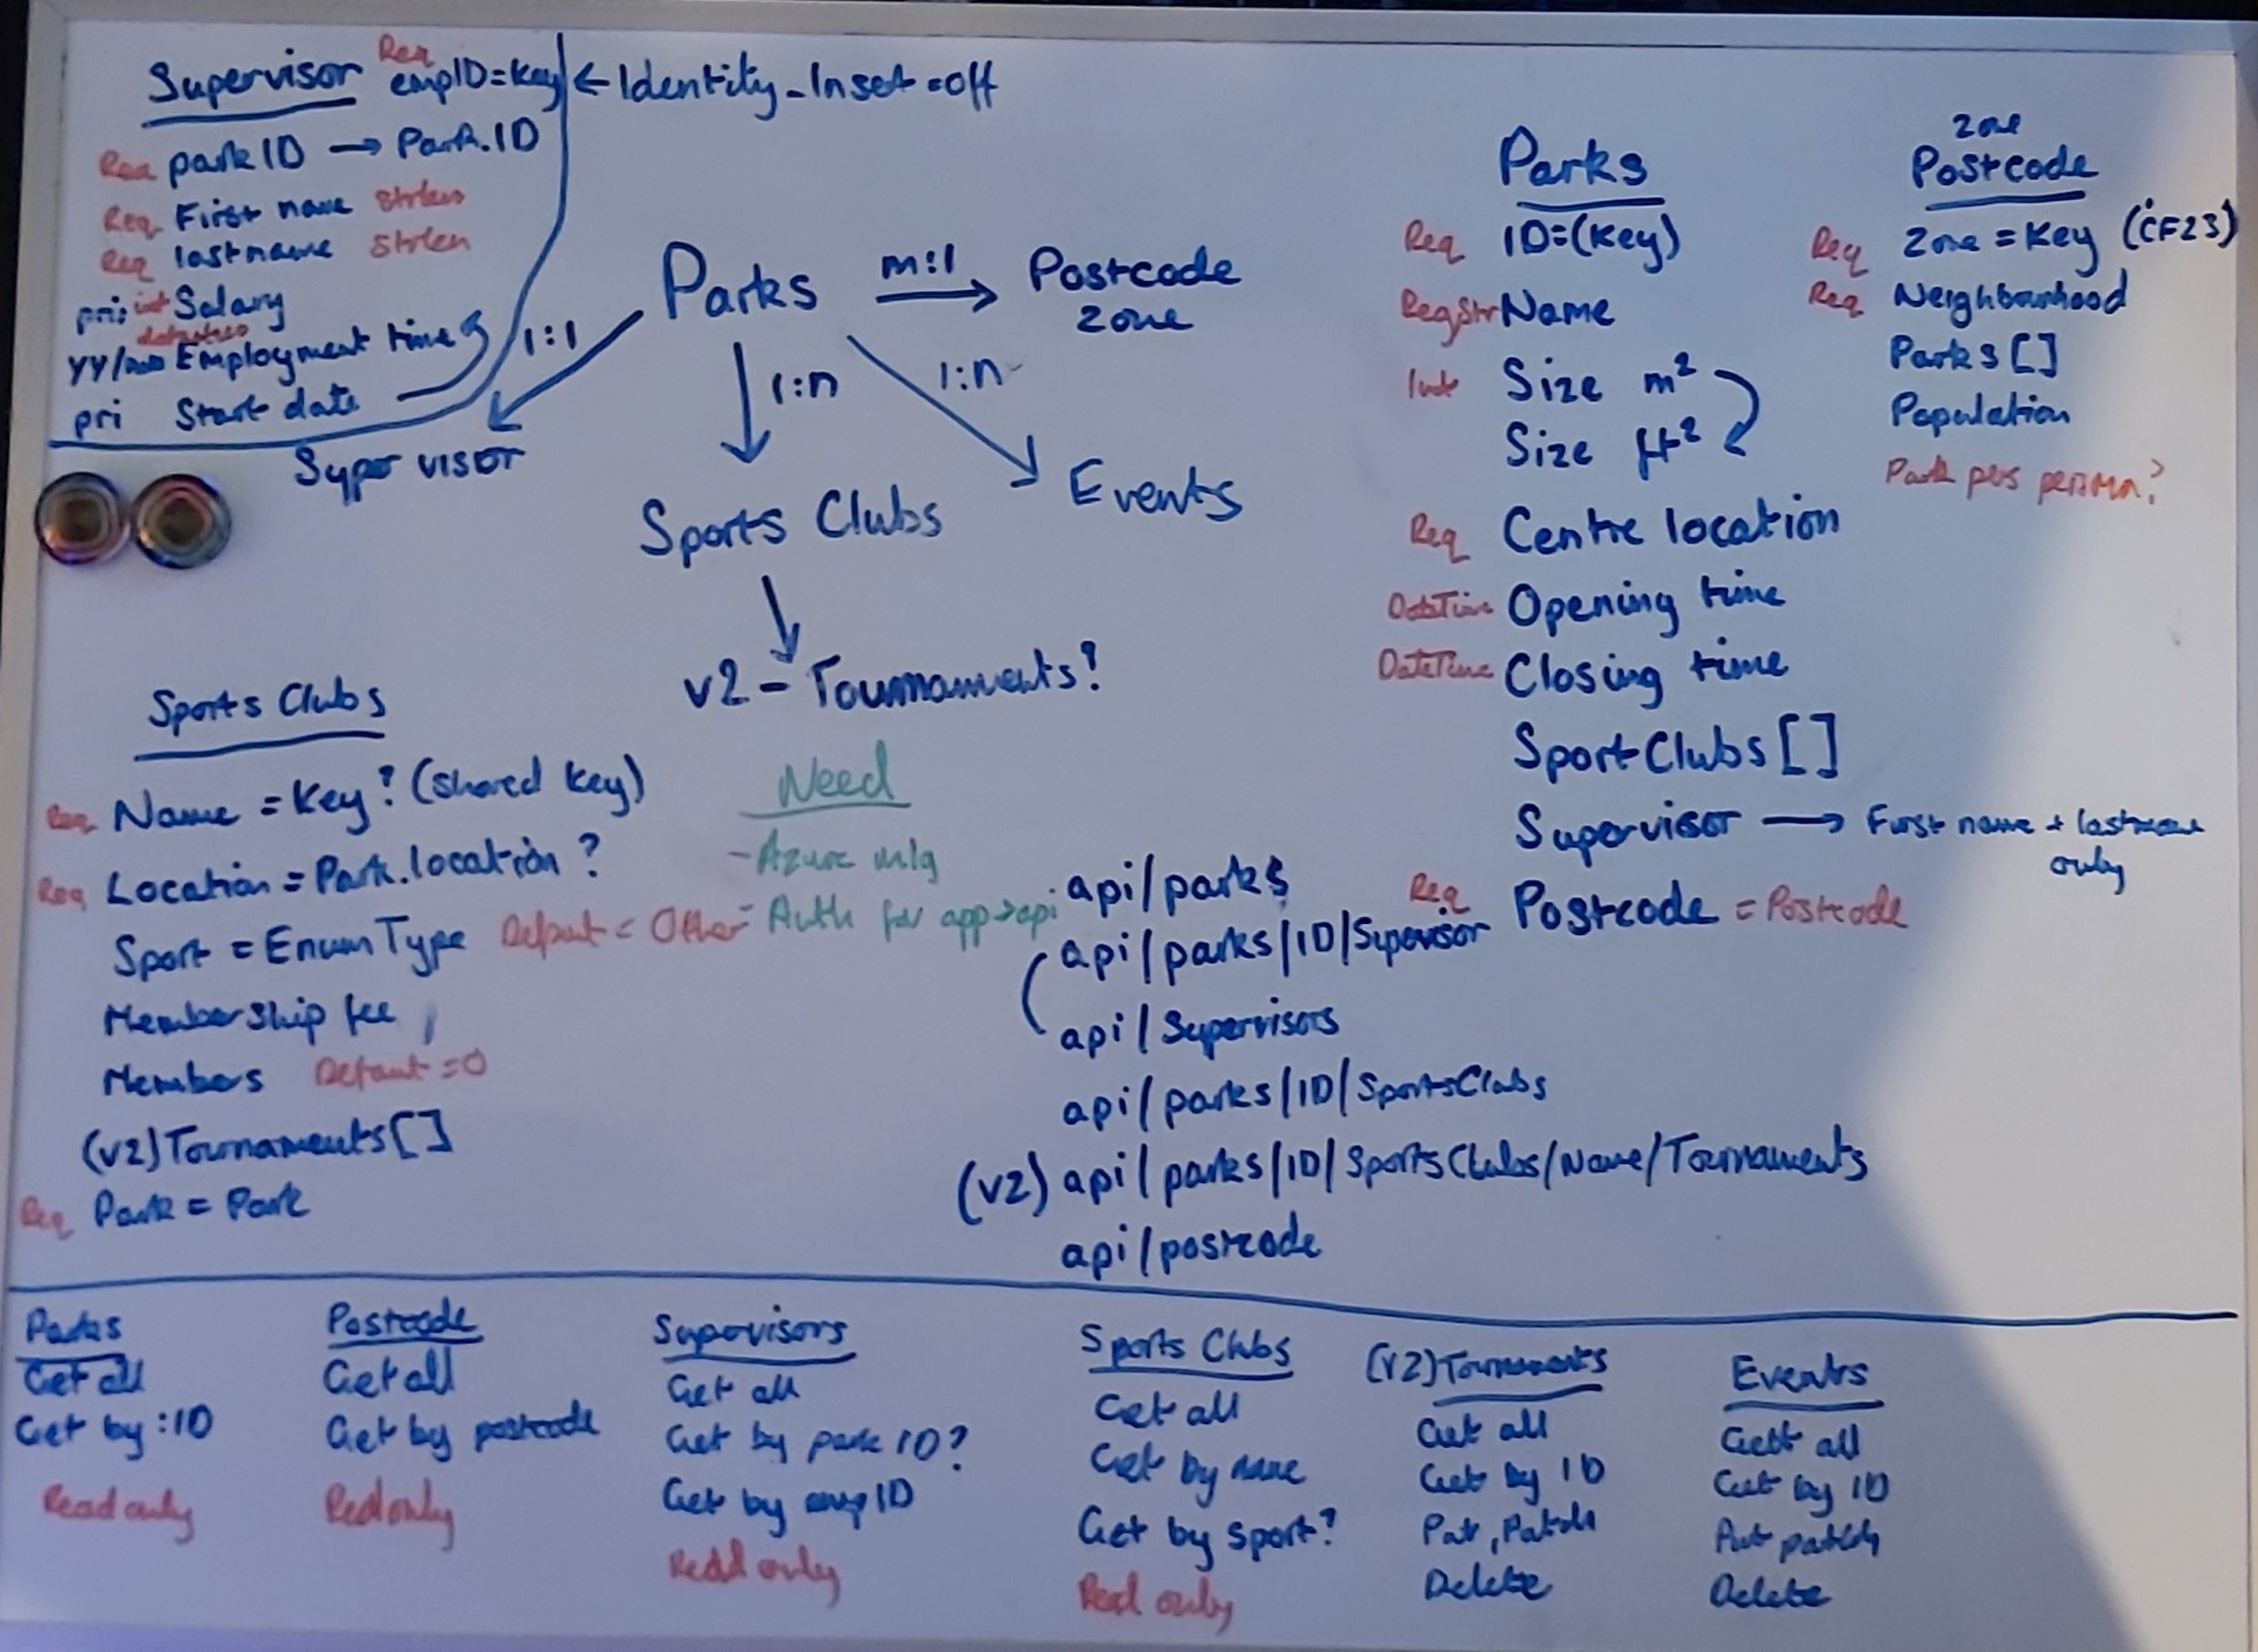 Supervisor Req empID=Key ← Identity_Inset=off
Req parkID → Park.ID
Req First name strlen
Req lastname strlen
pri int Salary
yy/mm Employment time
pri Start date
Parks m:1 → Postcode zone
1:1
Supervisor
1:n
1:n
Sports Clubs
Events
v2 - Tournaments?
Parks
Req ID=(Key)
Req Str Name
Int Size m²
Size ft²
Req Centre location
DateTime Opening time
DateTime Closing time
SportClubs []
Supervisor → First name + lastname only
Req Postcode = Postcode
zone
Postcode
Req Zone = Key (CF23)
Req Neighbourhood
Parks []
Population
Park per person?
Sports Clubs
Req Name = Key? (shared key)
Req Location = Park.location?
Sport = Enum Type Default = Other
Membership fee
Members Default = 0
(v2) Tournaments []
Req Park = Park
Need
- Azure mig
- Auth for app→api
api/parks
api/parks/ID/Supervisor
api/Supervisors
api/parks/ID/SportsClubs
(v2) api/parks/ID/SportsClubs/Name/Tournaments
api/postcode
Parks
Get all
Get by :ID
Read only
Postcode
Get all
Get by postcode
Read only
Supervisors
Get all
Get by park ID?
Get by emp ID
Read only
Sports Clubs
Get all
Get by name
Get by sport?
Read only
(v2) Tournaments
Get all
Get by ID
Put, Patch
Delete
Events
Gett all
Get by ID
Put patch
Delete